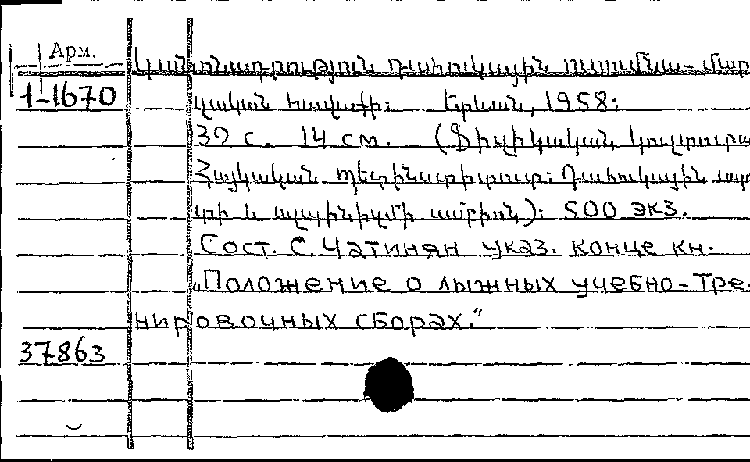 Арм.
Կանոնադրություն դահուկային ուսումնա-մար
1-1670
զական հավաքի: Երևան, 1958:
39 с. 14 см. (Ֆիզիկական կուլտուրա
Հայկական պետինստիտուտ: Դահուկային սպո
և ալպինիզմի ամբիոն): 500 экз.
Сост. С. Чатинян указ. конце кн.
„Положение о лыжных учебно-тре-
нировочных сборах.“
37863